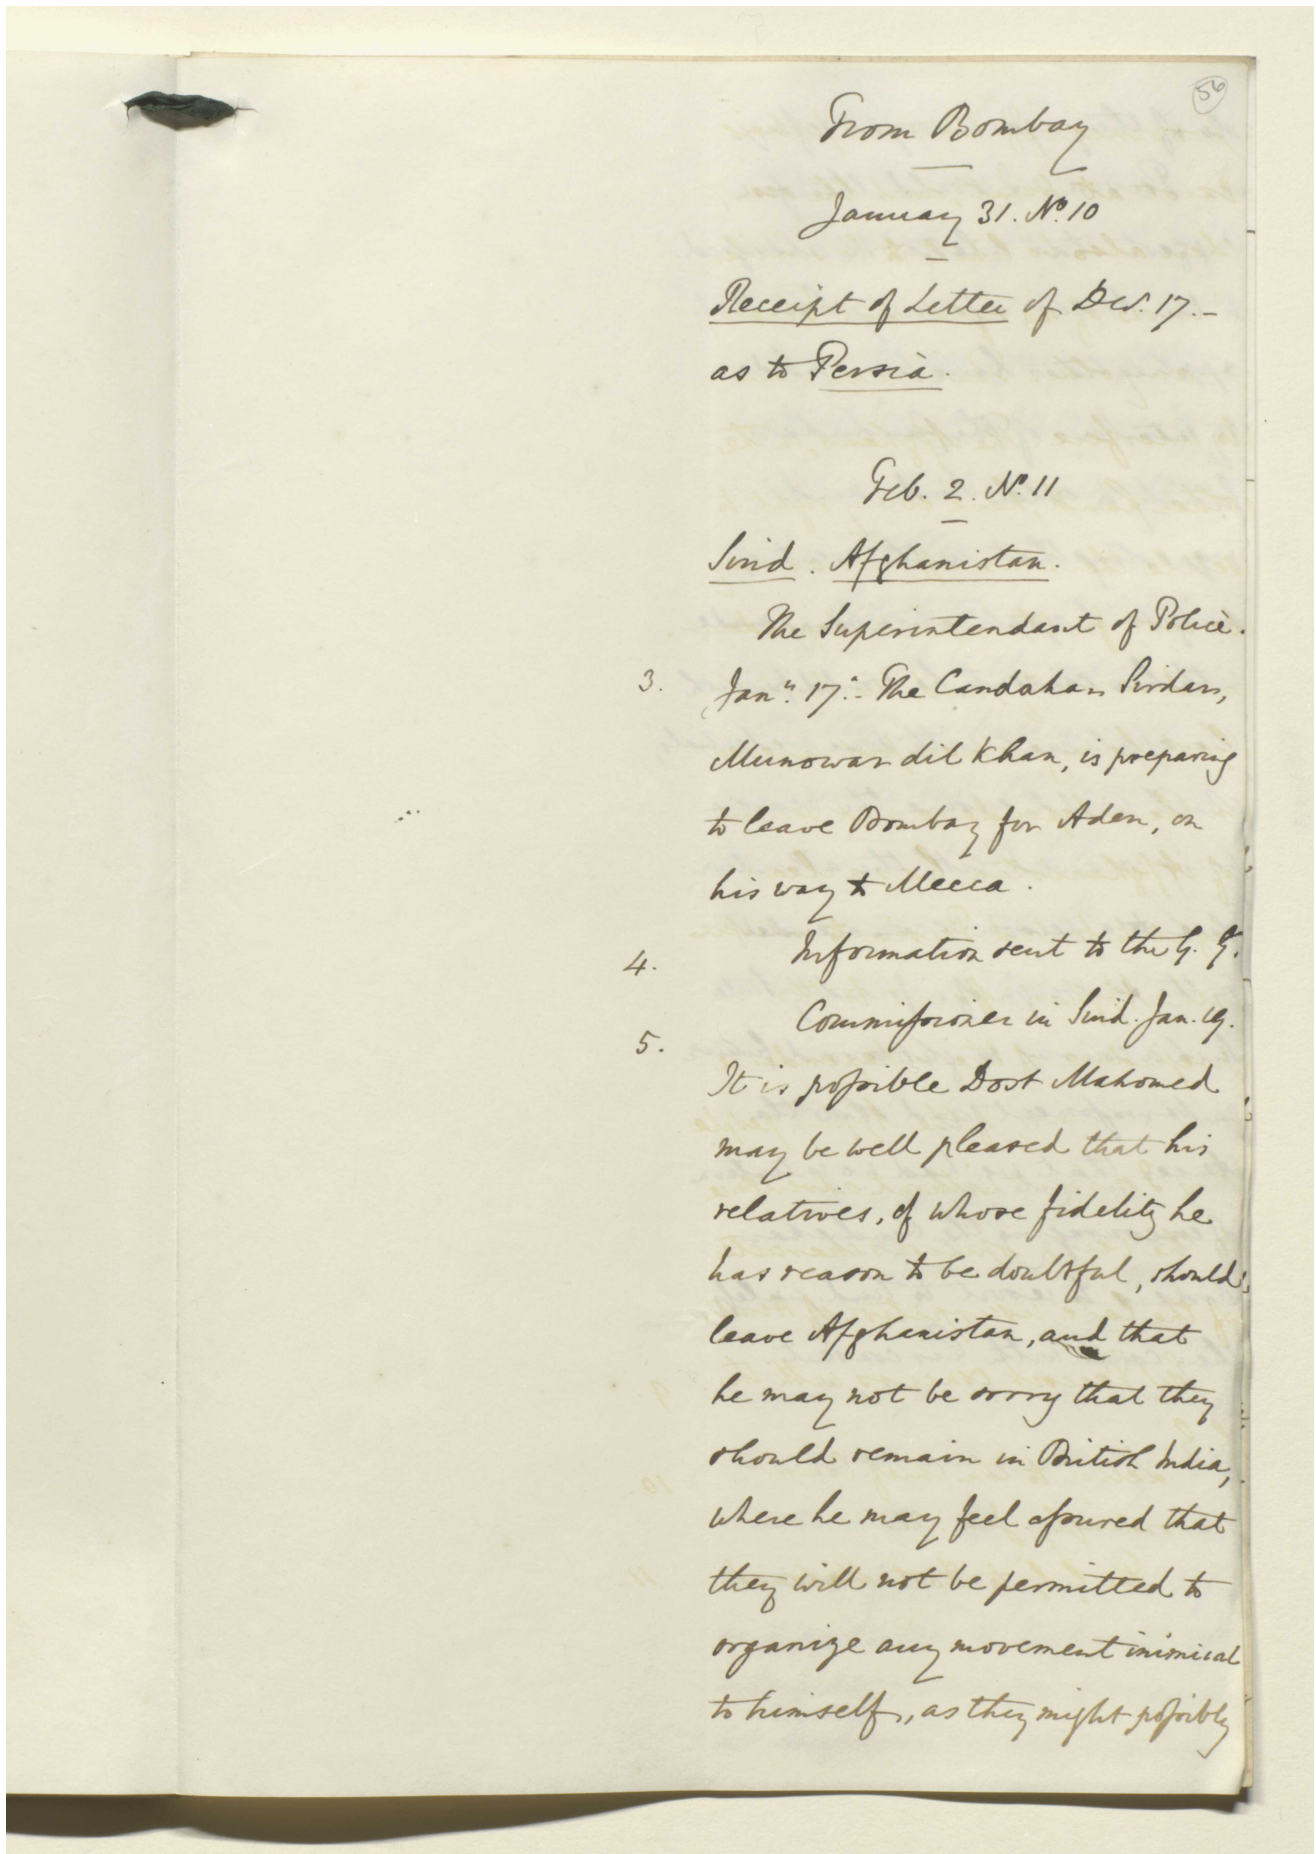 56
From Bombay
January 31. No. 10
Receipt of Letter of Dec. 17.-
as to Persia.
Feb. 2. No. 11
Sind. Afghanistan.
The Superintendant of Police.
3. Jany. 17.- The Candahar Sirdar,
Munowar dil Khan, is preparing
to leave Bombay for Aden, on
his way to Mecca.
4. Information sent to the G. G.
Commissioner in Sind. Jan. 19.
5.
It is possible Dost Mahomed
may be well pleased that his
relatives, of whose fidelity he
has reason to be doubtful, should
leave Afghanistan, and that
he may not be sorry that they
should remain in British India,
where he may feel assured that
they will not be permitted to
organize any movement inimical
to himself, as they might possibly